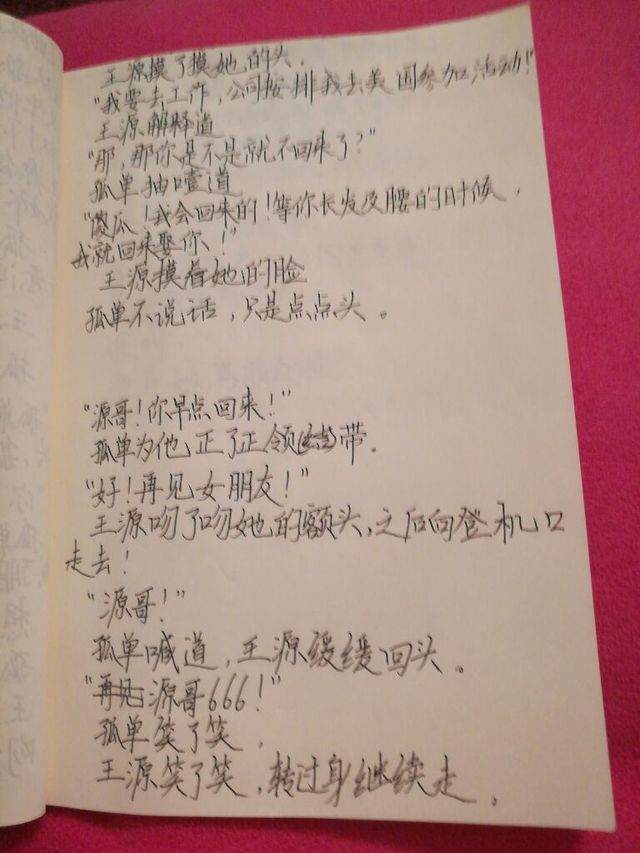 王源摸了摸她的头,
"我要去工作,公司按排我去美国参加活动!"
王源解释道
"那,那你是不是就不回来了?"
孤单抽噎道
"傻瓜!我会回来的!等你长发及腰的时候,
我就回来娶你!"
王源摸着她的脸
孤单不说话,只是点点头。
"源哥!你早点回来!"
孤单为他正了正领带.
"好!再见女朋友!"
王源吻了吻她的额头,之后向登机口
走去!
"源哥!"
孤单喊道,王源缓缓回头。
"再见源哥666!"
孤单笑了笑,
王源笑了笑,转过身继续走。